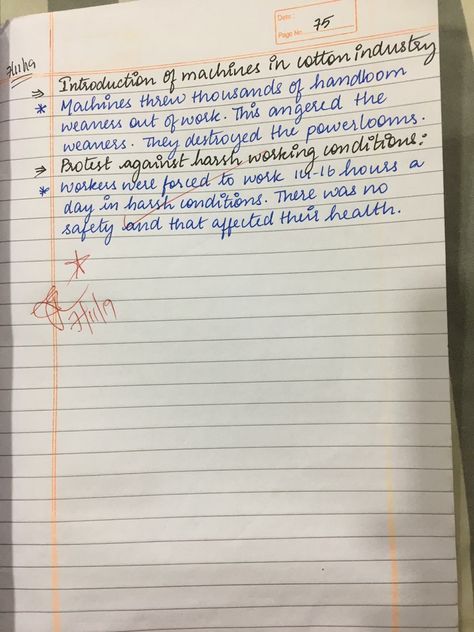 Date :
Page No. 75
7/11/19
⇒ Introduction of machines in cotton industry
* Machines threw thousands of handloom
weaners out of work. This angered the
weaners. They destroyed the powerlooms.
⇒ Protest against harsh working conditions:
* Workers were forced to work 14-16 hours a
day in harsh conditions. There was no
safety and that affected their health.
7/11/19